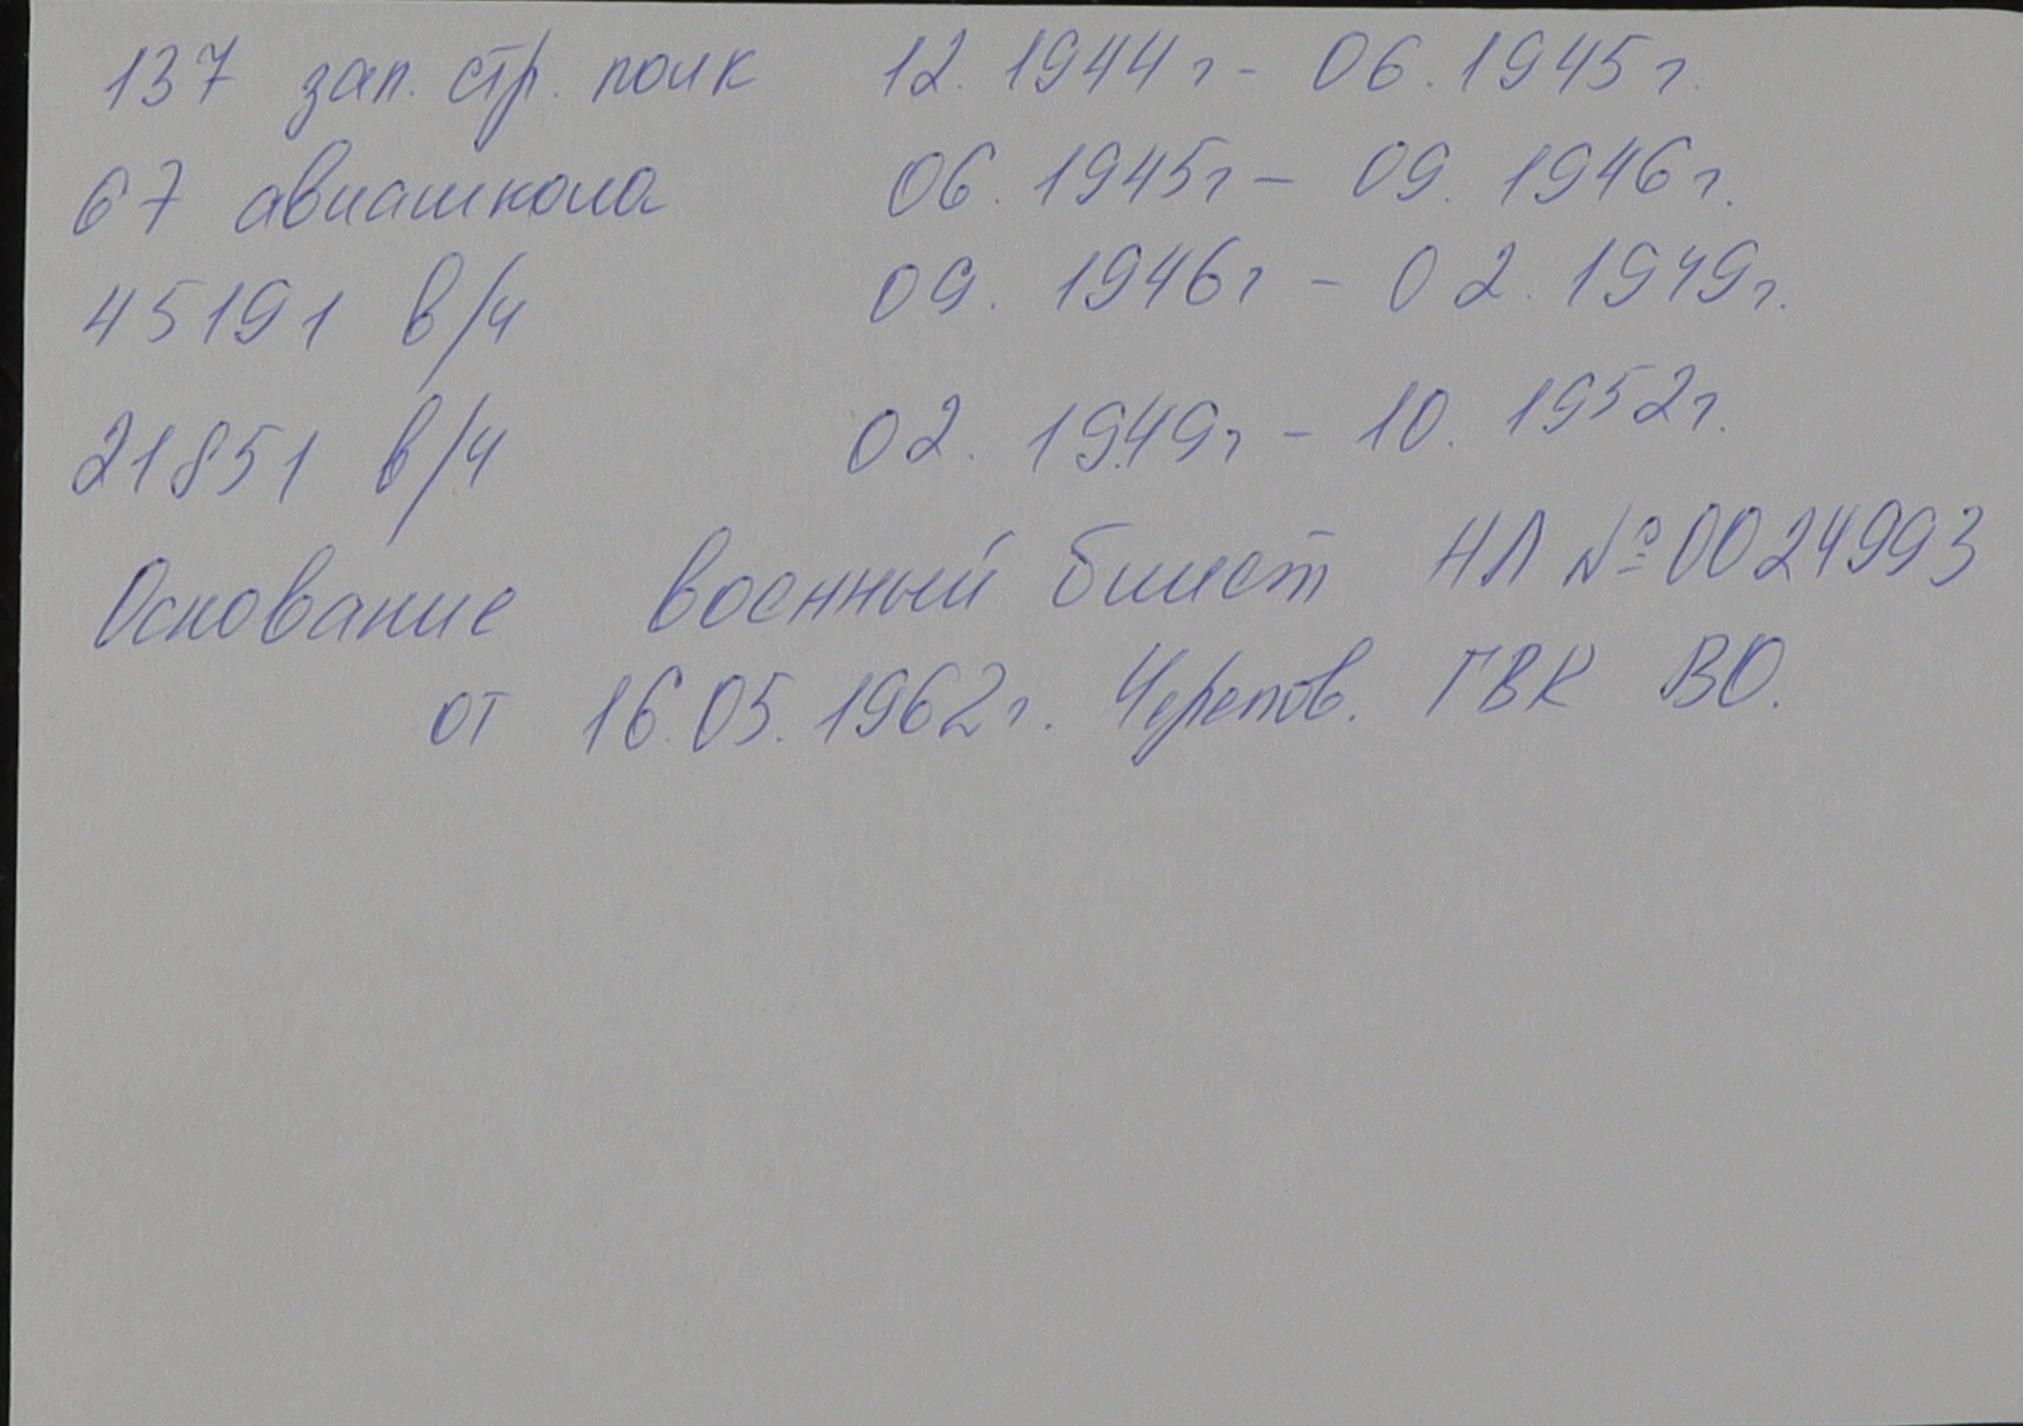 137 зап. стр. полк 12.1944г - 06.1945г.
67 авиашкола 06.1945г - 09.1946г.
45191 в/ч 09.1946г - 02.1949г.
21851 в/ч 02.1949г - 10.1952г.
Основание военный билет НЛ №0024993
от 16.05.1962г. Черепов. ГВК ВО.